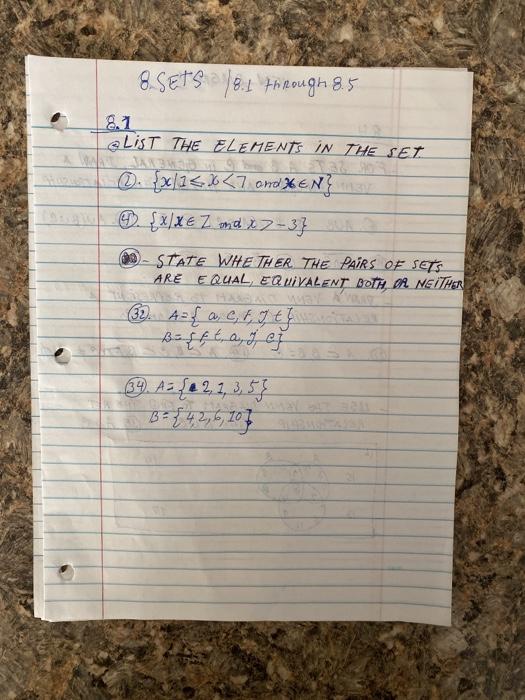 8. SETS / 8.1 through 8.5
8.1
LIST THE ELEMENTS IN THE SET
2. {x|1 ≤ x < 7 and x ∈ N}
4. {x|x ∈ Z and x > -3}
- STATE WHETHER THE PAIRS OF SETS
ARE EQUAL, EQUIVALENT BOTH, OR NEITHER
32. A={a, c, f, J, t}
B={f, t, a, J, c}
34. A={2, 1, 3, 5}
B={4, 2, 6, 10}